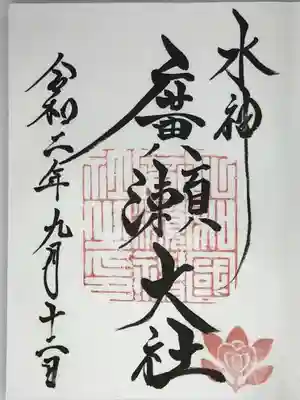 水神
廣瀬大社
令和二年九月十六日